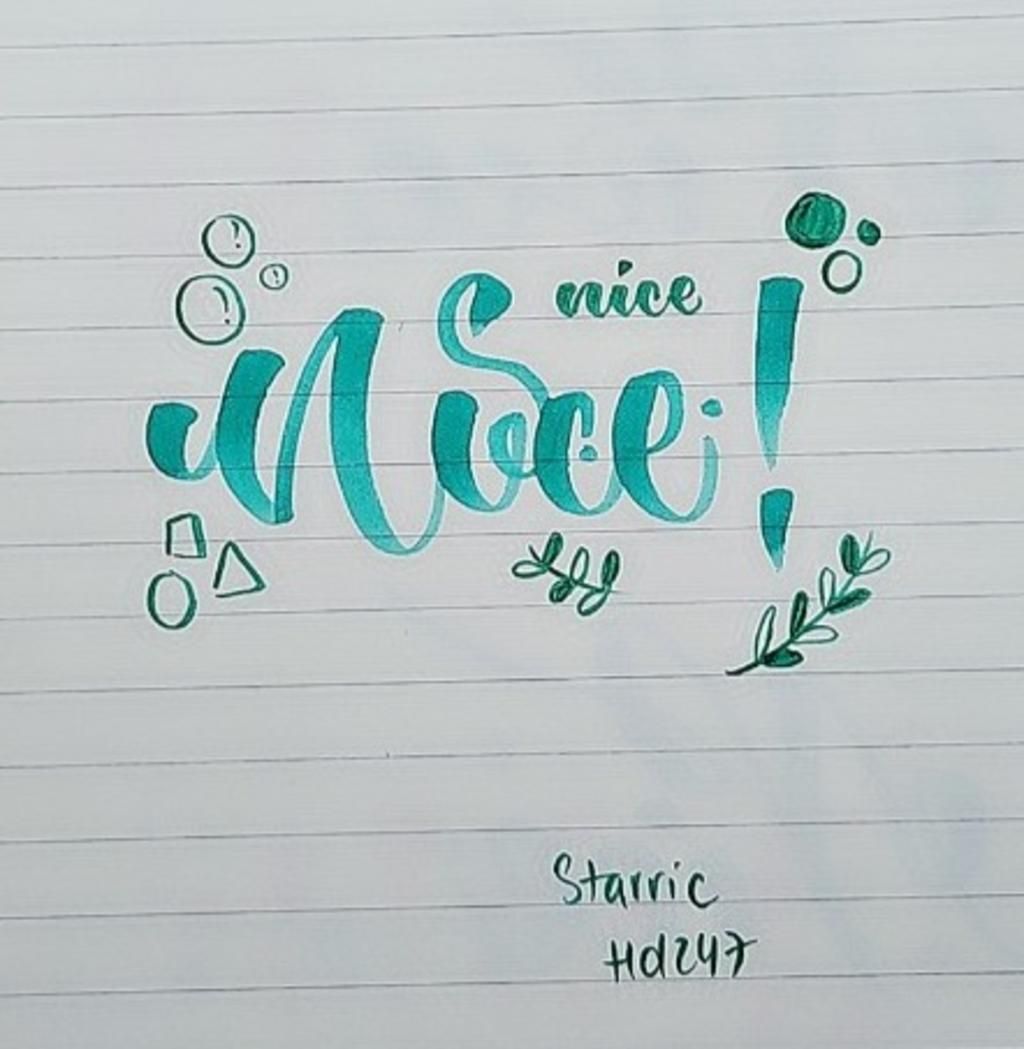 nice
Nice!
Starric
Hd247